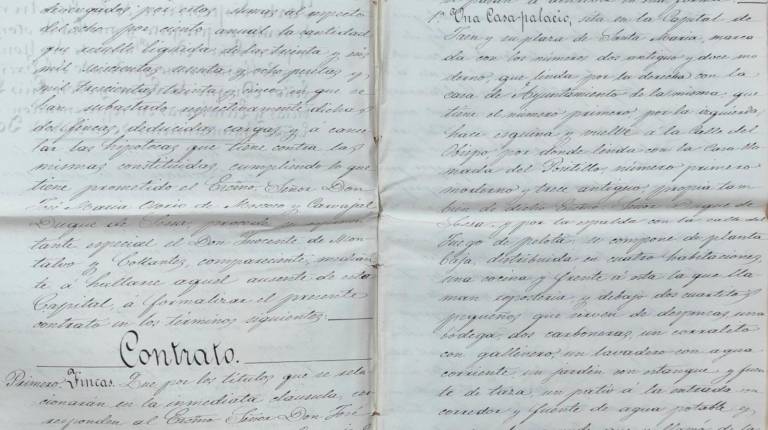 devengados por estas sumas al respecto
dicho por ciento anual la cantidad
que resulte líquida de las treinta y un
mil seiscientas sesenta y ocho pesetas y
mil trescientas treinta y cinco, en que se
han subastado respectivamente dichas
dos fincas, deducidas cargas, y a cance
lar las hipotecas que tiene contra las
mismas constituidas, cumpliendo lo que
tiene prometido el Excmo. Señor Don
José María Osorio de Moscoso y Carvajal
Duque de Sesa, procede su
tante especial el Don Inocente de Mon
talvo y Collantes, compareciente, median
te á hallarse aquel ausente de esta
Capital, á formalizar el presente
contrato en los términos siguientes:
Contrato.
Primero. Fincas. Que por los títulos que se rela
cionarán en la inmediata clausula, co
rresponden al Excmo Señor Don José
1ª Una Casa-palacio, sita en la Capital de
Jaen y su plaza de Santa Maria, marca
da con los números dos antiguo y doce mo
derno, que linda por la derecha con la
casa de Ayuntamiento de la misma, que
tiene el número primero, por la izquierda
hace esquina y vuelve á la Calle del
Obispo, por donde linda con la Casa lla
mada del Portillo, número primero
moderno y trece antiguo, propia tam
bien de dicho Excmo Señor Duque de
Sesa, y por la espalda con la calle del
Juego de pelota, se compone de planta
baja, distribuida en cuatro habitaciones,
una cocina y frente á esta la que lla
man repostería, y debajo dos cuartitos
pequeños que sirven de despensas, una
bodega, dos carboneras, un corraleto
con gallinero, un lavadero con agua
corriente, un jardin con estanque y fuen
te de taza, un patio á la entrada con
corredor y fuente de agua potable, y